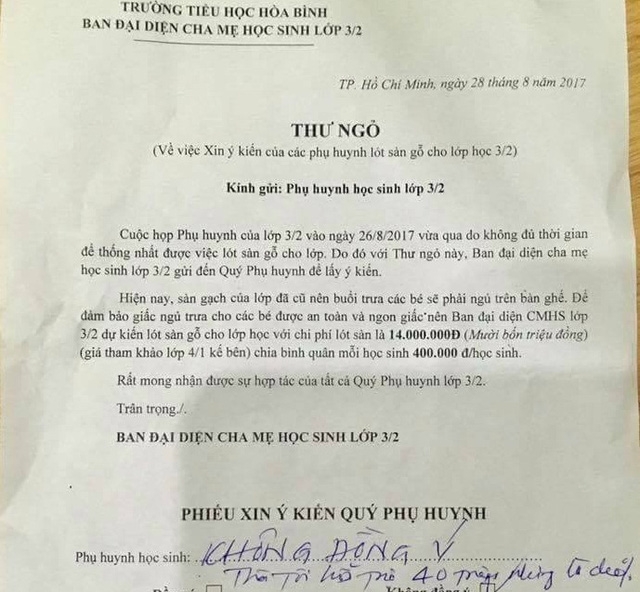 TRƯỜNG TIỂU HỌC HÒA BÌNH
BAN ĐẠI DIỆN CHA MẸ HỌC SINH LỚP 3/2
TP. Hồ Chí Minh, ngày 28 tháng 8 năm 2017
THƯ NGỎ
(Về việc Xin ý kiến của các phụ huynh lót sàn gỗ cho lớp học 3/2)
Kính gửi: Phụ huynh học sinh lớp 3/2
Cuộc họp Phụ huynh của lớp 3/2 vào ngày 26/8/2017 vừa qua do không đủ thời gian
để thống nhất được việc lót sàn gỗ cho lớp. Do đó với Thư ngỏ này, Ban đại diện cha mẹ
học sinh lớp 3/2 gửi đến Quý Phụ huynh để lấy ý kiến.
Hiện nay, sàn gạch của lớp đã cũ nên buổi trưa các bé sẽ phải ngủ trên bàn ghế. Để
đảm bảo giấc ngủ trưa cho các bé được an toàn và ngon giấc nên Ban đại diện CMHS lớp
3/2 dự kiến lót sàn gỗ cho lớp học với chi phí lót sàn là 14.000.000Đ (Mười bốn triệu đồng)
(giá tham khảo lớp 4/1 kế bên) chia bình quân mỗi học sinh 400.000 đ/học sinh.
Rất mong nhận được sự hợp tác của tất cả Quý Phụ huynh lớp 3/2.
Trân trọng./.
BAN ĐẠI DIỆN CHA MẸ HỌC SINH LỚP 3/2
PHIẾU XIN Ý KIẾN QUÝ PHỤ HUYNH
Phụ huynh học sinh: KHÔNG ĐỒNG Ý
Tôi 40